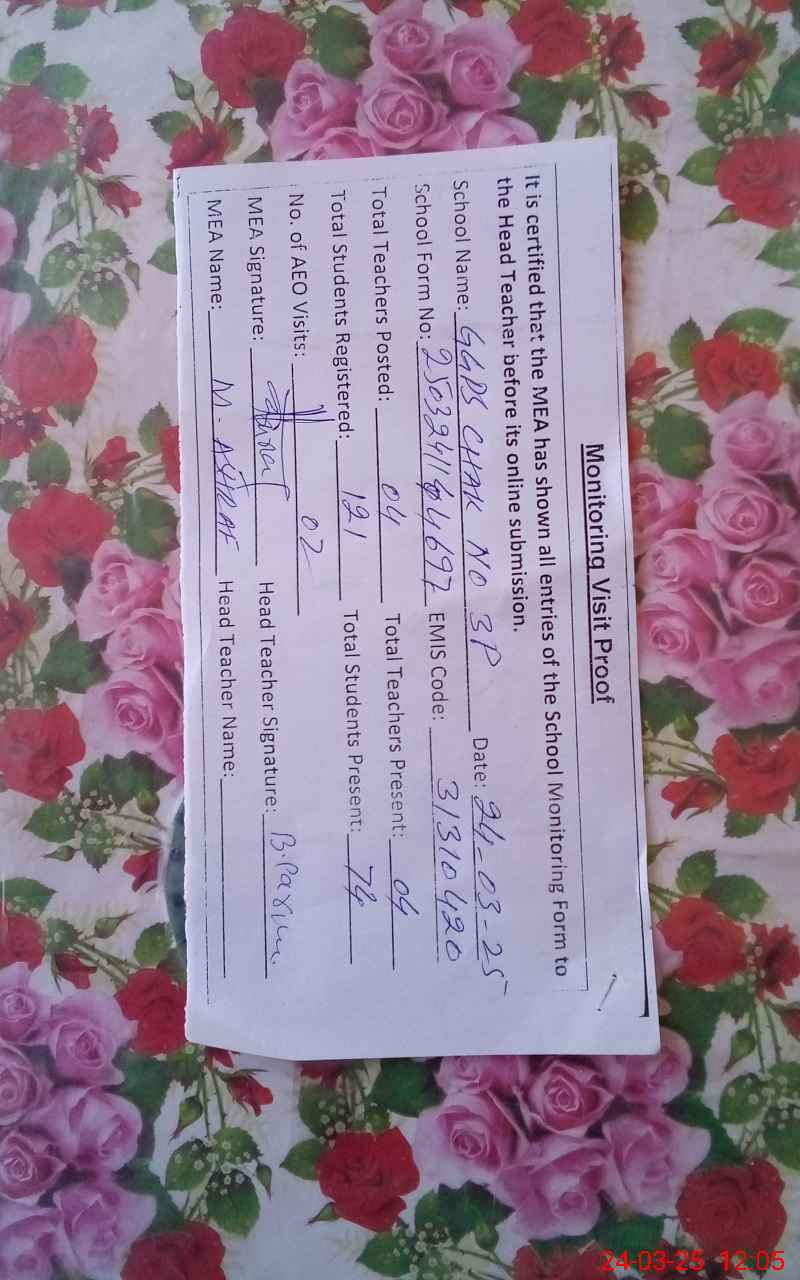 Monitoring Visit Proof
It is certified that the MEA has shown all entries of the School Monitoring Form to
the Head Teacher before its online submission.
School Name: GGPS CHAK NO 3P Date: 24-03-25
School Form No: EMIS Code: 31310420
Total Teachers Posted: 04 Total Teachers Present: 04
Total Students Registered: 121 Total Students Present: 74
No. of AEO Visits: 02
MEA Signature: Head Teacher Signature:
MEA Name: M. ASHRAF Head Teacher Name:
24-03-25 12:05